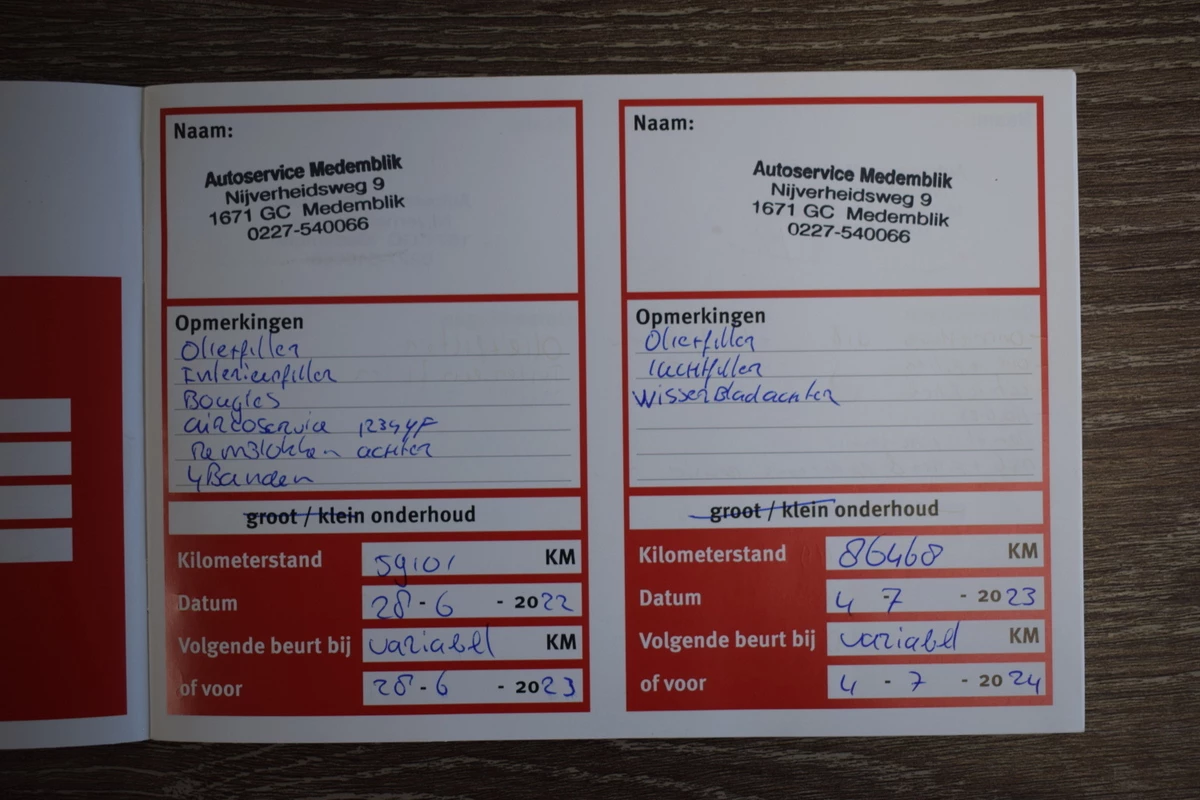 Naam:
Autoservice Medemblik
Nijverheidsweg 9
1671 GC Medemblik
0227-540066
Opmerkingen
Oliefilter
Interieurfilter
Bougies
aircoservice 1234yf
Remblokken achter
4 Banden
groot / klein onderhoud
Kilometerstand 59101 KM
Datum 28-6 - 2022
Volgende beurt bij variabel KM
of voor 28-6 - 2023
Naam:
Autoservice Medemblik
Nijverheidsweg 9
1671 GC Medemblik
0227-540066
Opmerkingen
Oliefilter
luchtfilter
WisserBlad achter
groot / klein onderhoud
Kilometerstand 86468 KM
Datum 4 - 7 - 2023
Volgende beurt bij variabel KM
of voor 4 - 7 - 2024